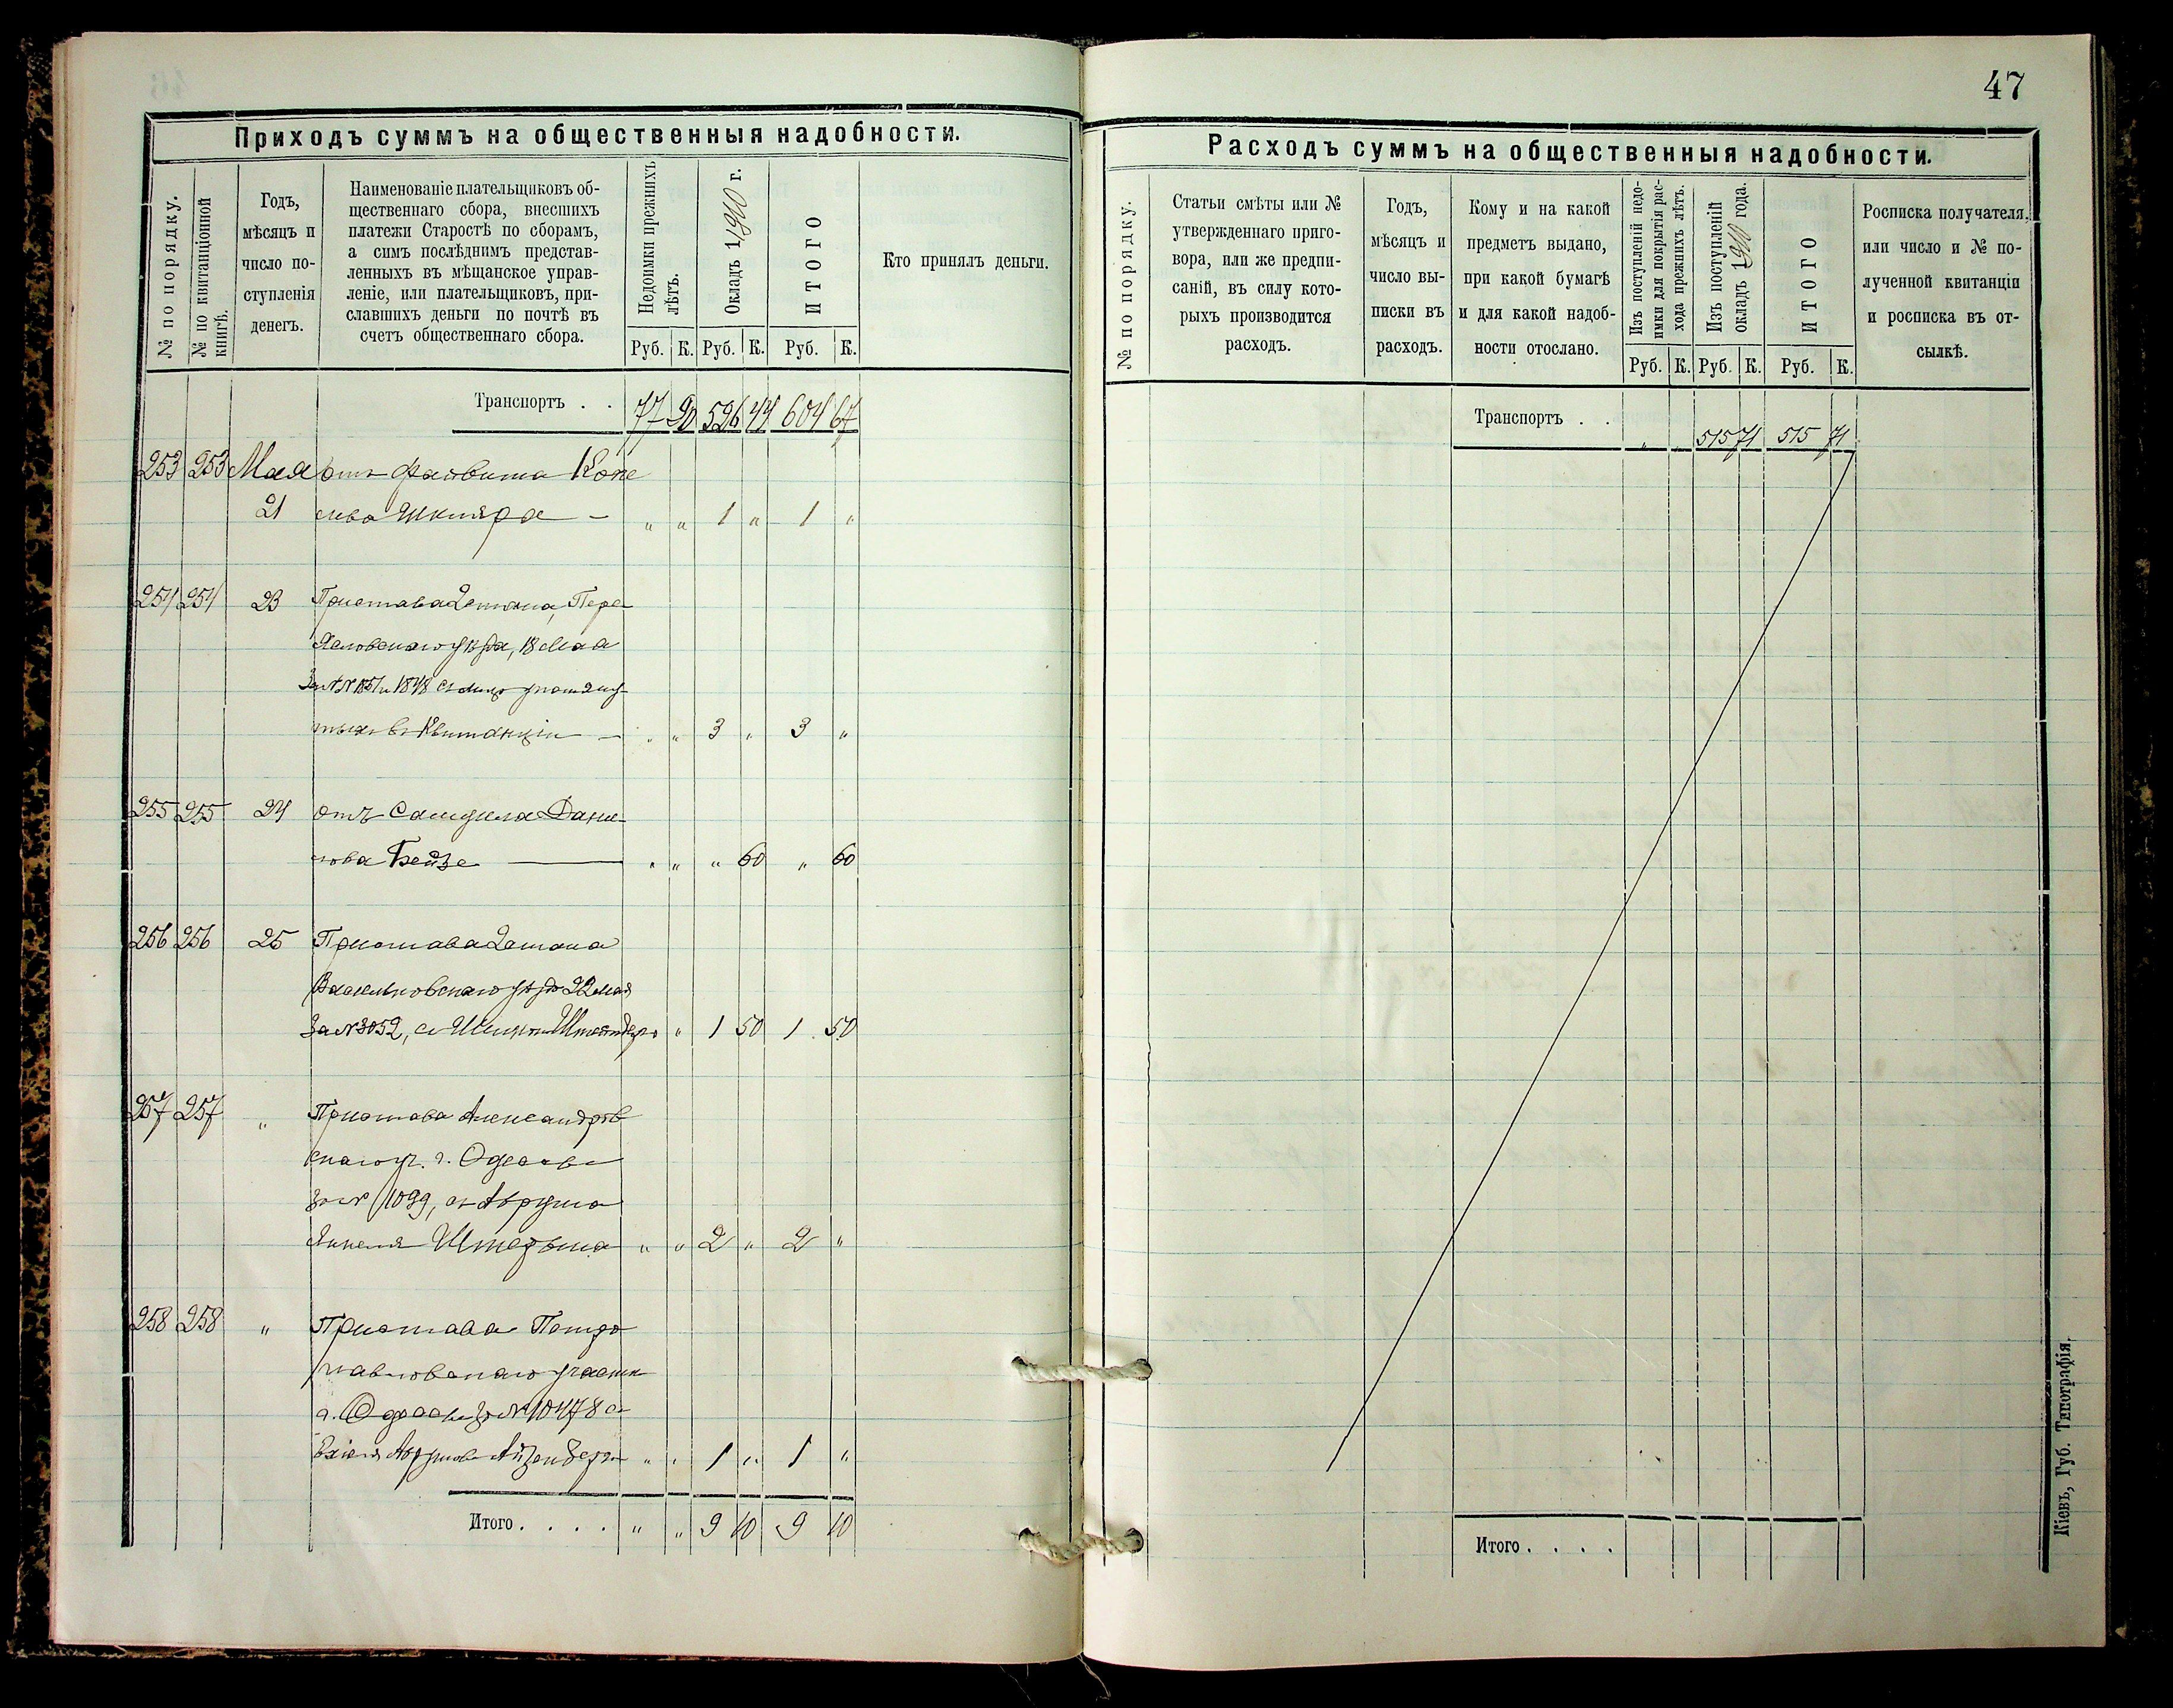 47
Приходъ суммъ на общественныя надобности.
№ по порядку.
№ по квитанціонной
книгѣ.
Годъ,
мѣсяцъ и
число по-
ступленія
денегъ.
Наименованіе плательщиковъ об-
щественнаго сбора, внесшихъ
платежи Старостѣ по сборамъ,
а симъ послѣднимъ представ-
ленныхъ въ мѣщанское управ-
леніе, или плательщиковъ, при-
славшихъ деньги по почтѣ въ
счетъ общественнаго сбора.
Недоимки прежнихъ
лѣтъ.
Окладъ 1910 г.
ИТОГО
Кто принялъ деньги.
Руб. К. Руб. К. Руб. К.
Транспортъ . . 77 90 526 44 604 67
253 253 Мая отъ
21 Шкляра — „ „ 1 „ 1 „
254 254 23 Пристава 2 стана, Пере-
яславскаго уѣзда, 18 Мая
за №№ 1851 и 1848 съ лицъ
въ квитанціи — „ „ 3 „ 3 „
255 255 24 отъ Самуила Дани-
лова Бейзе — „ „ „ 60 „ 60
256 256 25 Пристава 2 стана
Васильковскаго уѣзда 22 мая
за № 3052, съ „ 1 50 1 50
257 257 „ Пристава Александров
скаго уч. г. Одессы
за № 1099, съ Аврума
Янкеля Штермана „ „ 2 „ 2 „
258 258 „ Пристава Петро
павловскаго участк
г. Одессы за № 10478 съ
Ехіеля Аврумова Айзенберга „ „ 1 „ 1 „
Итого . . . . „ „ 9 10 9 10
Расходъ суммъ на общественныя надобности.
№ по порядку.
Статьи смѣты или №
утвержденнаго приго-
вора, или же предпи-
саній, въ силу кото-
рыхъ производится
расходъ.
Годъ,
мѣсяцъ и
число вы-
писки въ
расходъ.
Кому и на какой
предметъ выдано,
при какой бумагѣ
и для какой надоб-
ности отослано.
Изъ поступленій недо-
имки для покрытія рас-
хода прежнихъ лѣтъ.
Изъ поступленій
окладъ 1910 года.
ИТОГО
Росписка получателя,
или число и № по-
лученной квитанціи
и росписка въ от-
сылкѣ.
Руб. К. Руб. К. Руб. К.
Транспортъ . . „ „ 515 71 515 71
Итого . . . .
Кіевъ, Губ. Типографія.